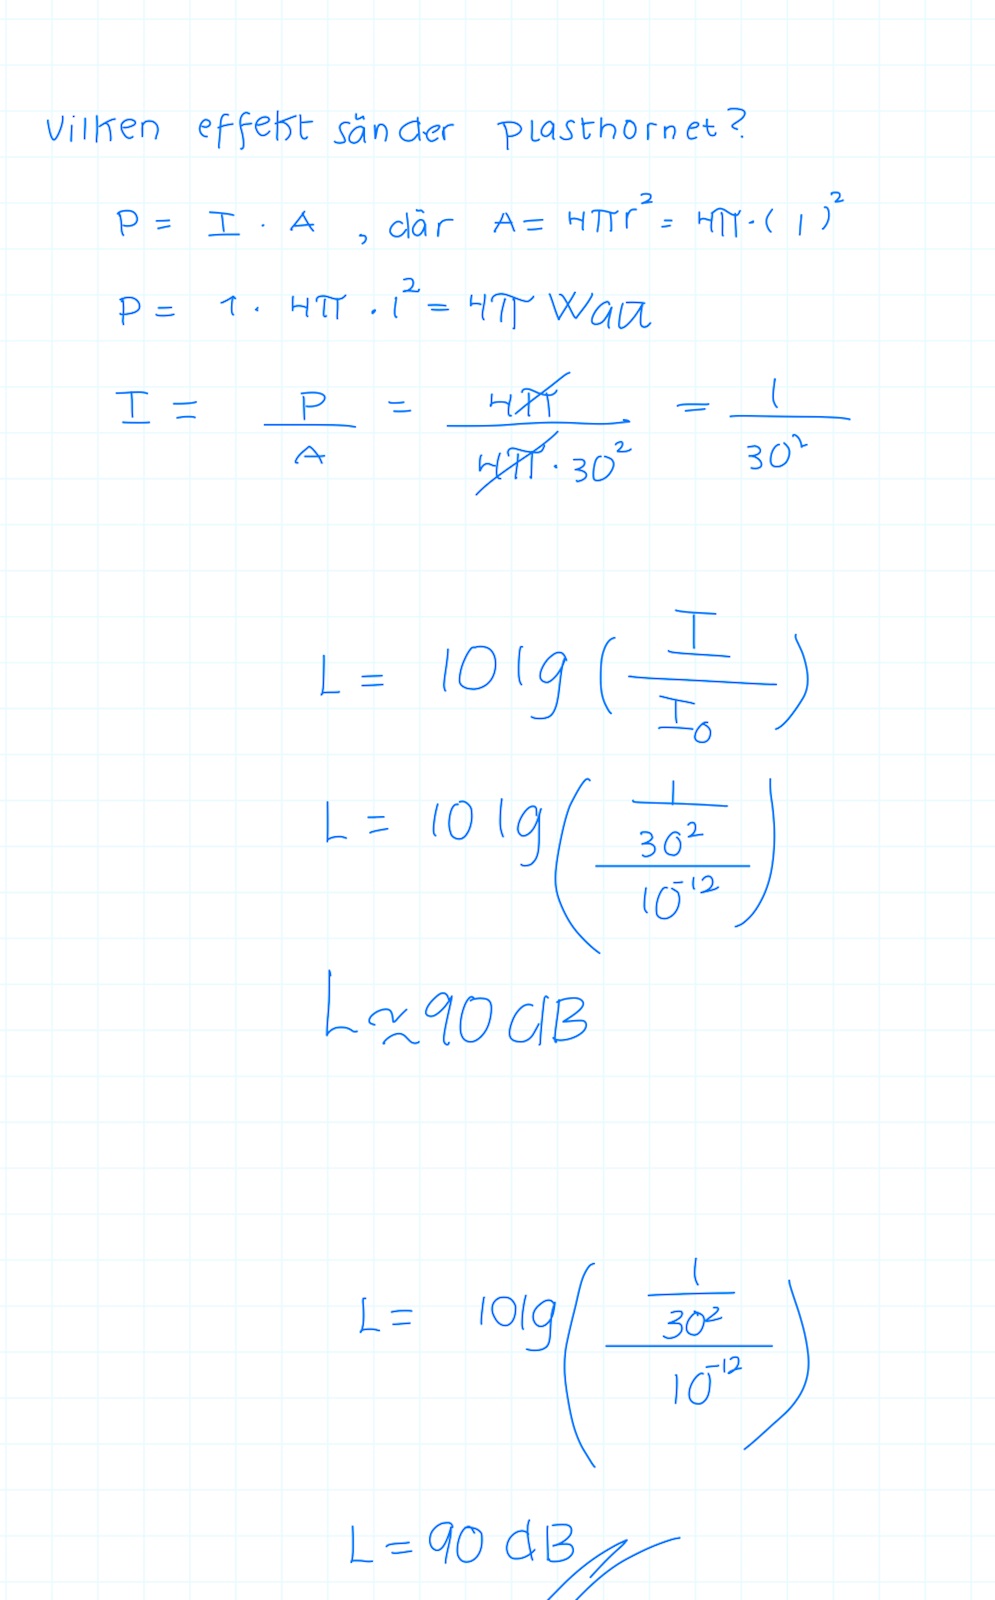 Vilken effekt sänder plasthornet?
P = I · A , där A = 4πr² = 4π·(1)²
P = 1 · 4π · 1² = 4π Watt
I = P/A = 4π/(4π · 30²) = 1/30²
L = 10 lg (I/I₀)
L = 10 lg ((1/30²)/10⁻¹²)
L ≈ 90 dB
L = 10 lg ((1/30²)/10⁻¹²)
L = 90 dB